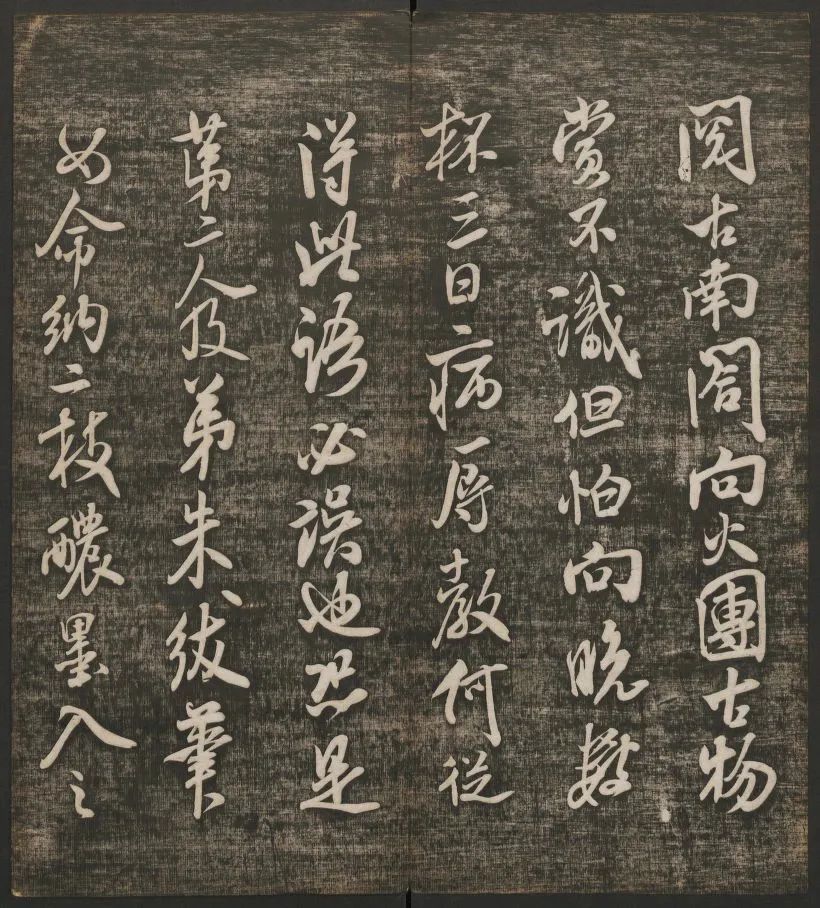 閱古南閣向火團古物
賞不識但怕向晚數
杯三日病辱教何從
得此語必誤也恐是
苐二人及弟朱紱筆
如命納二枝醲墨入之